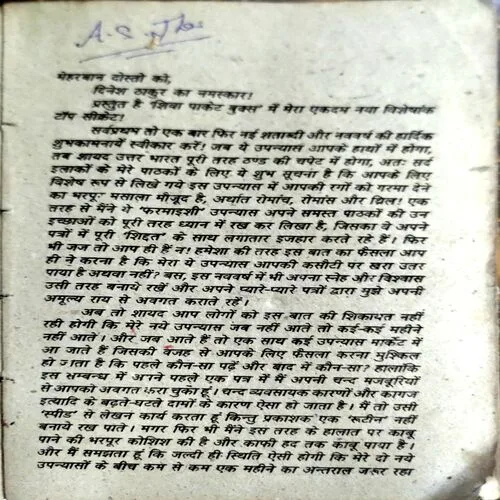 मेहरबान दोस्तो को,
दिनेश ठाकुर का नमस्कार!
प्रस्तुत है 'शिवा पाकेट बुक्स' में मेरा एकदम नया विशेषांक
टॉप सीक्रेट!
सर्वप्रथम तो एक बार फिर नई शताब्दी और नववर्ष की हार्दिक
शुभकामनायें स्वीकार करें! जब ये उपन्यास आपके हाथों में होगा,
तब शायद उत्तर भारत पूरी तरह ठण्ड की चपेट में होगा, अतः सर्द
इलाकों के मेरे पाठकों के लिए ये शुभ सूचना है कि आपके लिए
विशेष रूप से लिखे गये इस उपन्यास में आपकी रगों को गरमा देने
का भरपूर मसाला मौजूद है, अर्थात रोमांच, रोमांस और थ्रिल! एक
तरह से मैंने ये 'फरमाइशी' उपन्यास अपने समस्त पाठकों की उन
इच्छाओं को पूरी तरह ध्यान में रख कर लिखा है, जिसका वे अपने
पत्रों में पूरी 'शिद्दत' के साथ लगातार इजहार करते रहे हैं। फिर
भी जज तो आप ही हैं न! हमेशा की तरह इस बात का फैसला आप
ही ने करना है कि मेरा ये उपन्यास आपकी कसौटी पर खरा उतर
पाया है अथवा नहीं? बस, इस नववर्ष में भी अपना स्नेह और विश्वास
उसी तरह बनाये रखें और अपने प्यारे-प्यारे पत्रों द्वारा मुझे अपनी
अमूल्य राय से अवगत कराते रहें।
अब तो शायद आप लोगों को इस बात की शिकायत नहीं
रही होगी कि मेरे नये उपन्यास जब नहीं आते तो कई-कई महीने
नहीं आते। और जब आते हैं तो एक साथ कई उपन्यास मार्केट में
आ जाते हैं जिसकी वजह से आपके लिए फैसला करना मुश्किल
हो जाता है कि पहले कौन-सा पढ़ें और बाद में कौन-सा? हालांकि
इस सम्बन्ध में अपने पहले एक पत्र में मैं अपनी चन्द मजबूरियों
से आपको अवगत करा चुका हूं। चन्द व्यवसायक कारणों और कागज
इत्यादि के बढ़ते-घटते दामों के कारण ऐसा हो जाता है। मैं तो उसी
'स्पीड' से लेखन कार्य करता हूं किन्तु प्रकाशक एक 'रूटीन' नहीं
बनाये रख पाते। मगर फिर भी मैंने इस तरह के हालात पर काबू
पाने की भरपूर कोशिश की है और काफी हद तक काबू पाया है।
और मैं समझता हूं कि जल्दी ही स्थिति ऐसी होगी कि मेरे दो नये
उपन्यासों के बीच कम से कम एक महीने का अन्तराल जरूर रहा